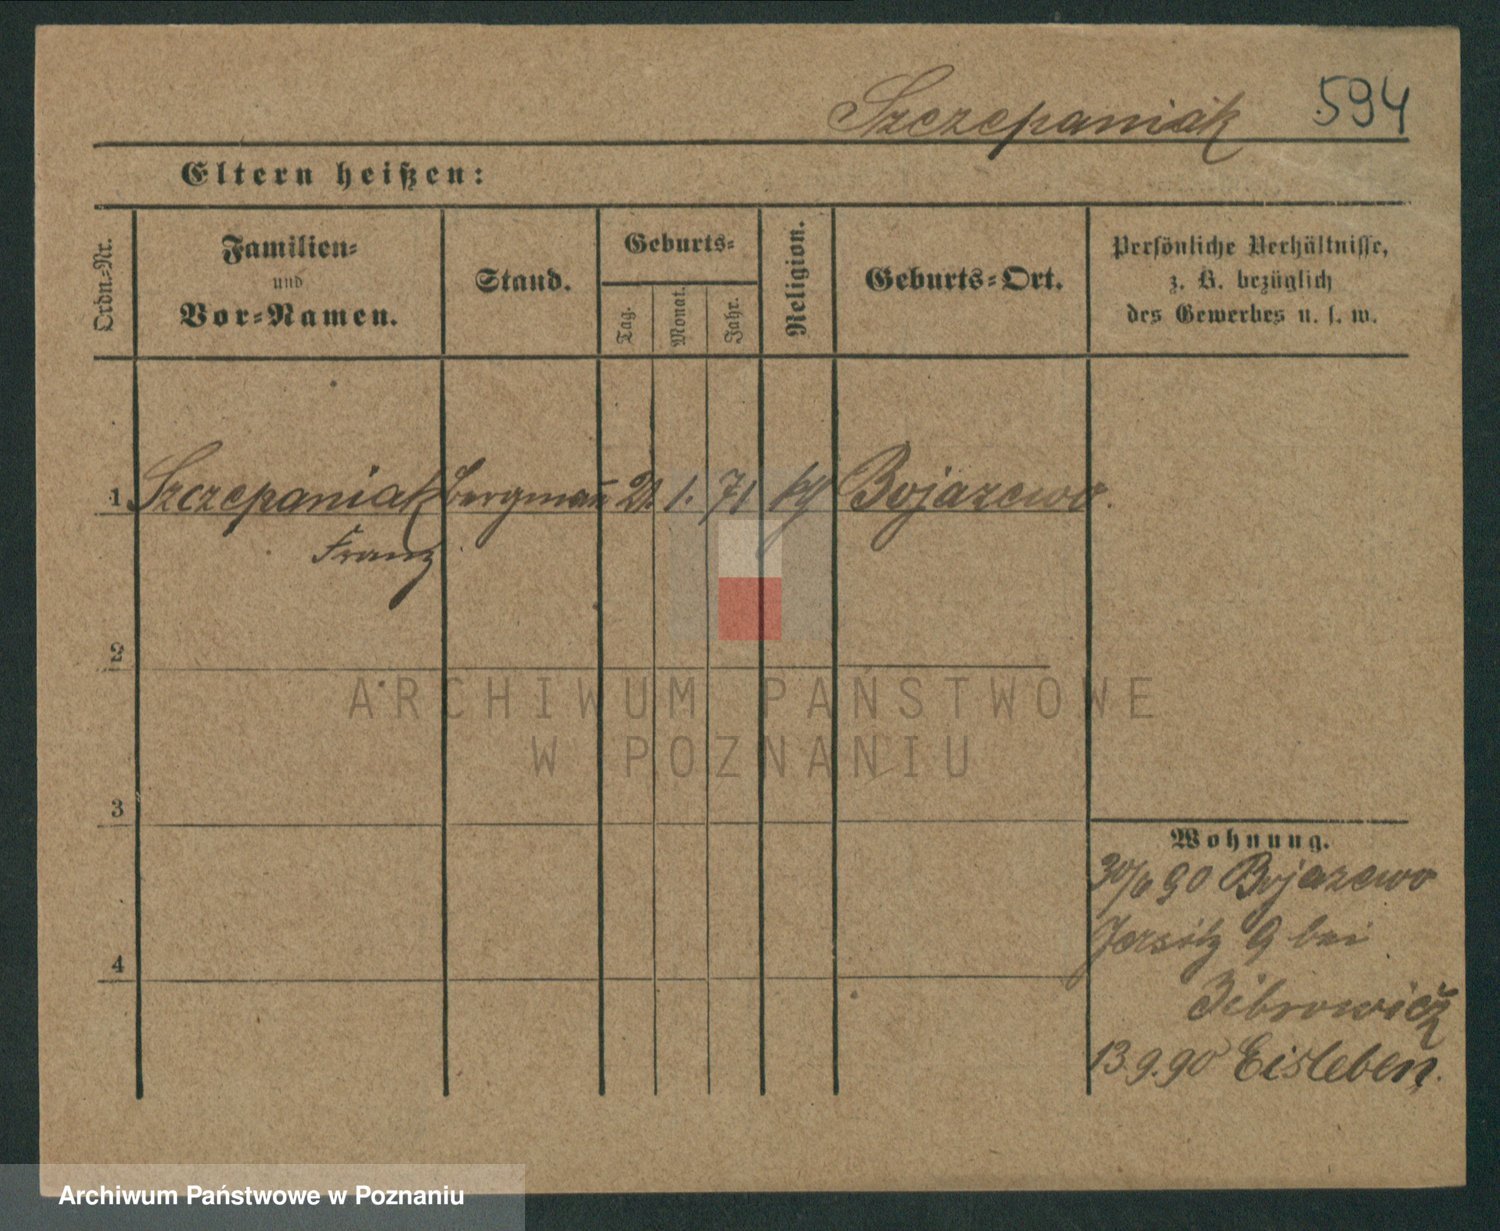 Szczepaniak 594
Eltern heißen:
Ordn.-Nr.
Familien-
und
Vor-Namen.
Stand.
Geburts-
Tag.
Monat.
Jahr.
Religion.
Geburts-Ort.
Persönliche Verhältnisse,
z. B. bezüglich
des Gewerbes u. s. w.
1 Szczepaniak Bergmann 21. 1. 71 kg Bojazewo.
Franz
2
3
4
Wohnung.
90 Bojazewo
Jersitz 9 bei
Zibrowicz
13.9.90 Eisleben.
ARCHIWUM PAŃSTWOWE
W POZNANIU
Archiwum Państwowe w Poznaniu